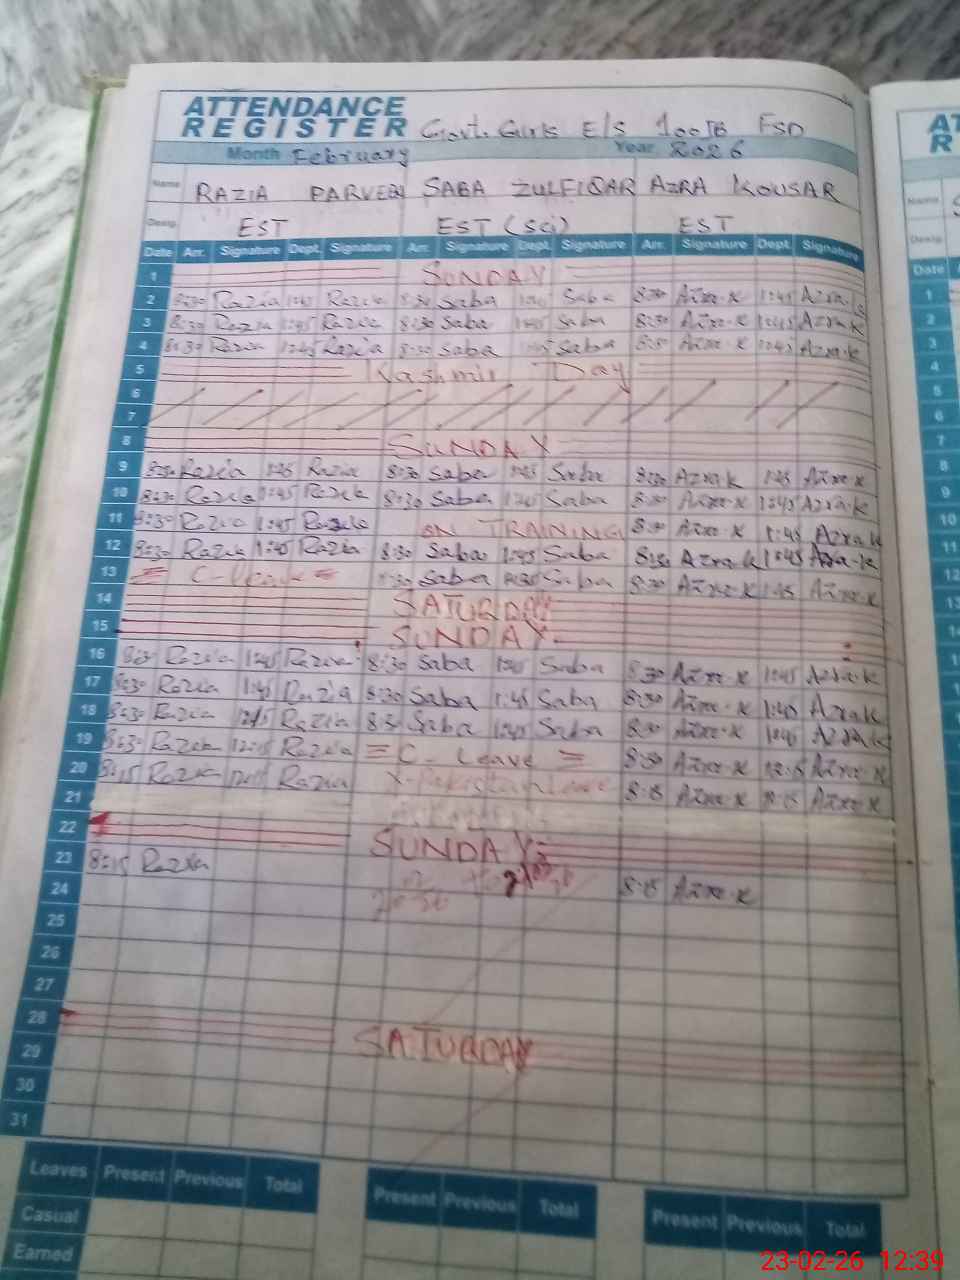 ATTENDANCE
REGISTER Govt. Girls E/S 100JB FSD
Month February Year 2026
Name RAZIA PARVEEN SABA ZULFIQAR AZRA KOUSAR
Desig EST EST (Sci) EST
Date Arr. Signature Dept. Signature Arr. Signature Dept. Signature Arr. Signature Dept. Signature
1 SUNDAY
2 8:30 Razia 1:45 Razia 8:30 Saba 1:45 Saba 8:30 Azra-K 1:45 Azra-K
3 8:30 Razia 1:45 Razia 8:30 Saba 1:45 Saba 8:30 Azra-K 1:45 Azra K
4 8:30 Razia 1:45 Razia 8:30 Saba 1:45 Saba 8:30 Azra-K 1:45 Azra-K
5 Kashmir Day
6
7
8 SUNDAY
9 8:30 Razia 1:45 Razia 8:30 Saba 1:45 Saba 8:30 Azra K 1:45 Azra-K
10 8:30 Razia 1:45 Razia 8:30 Saba 1:45 Saba 8:30 Azra-K 1:45 Azra-K
11 8:30 Razia 1:45 Razia ON TRAINING 8:30 Azra-K 1:45 Azra K
12 8:30 Razia 1:45 Razia 8:30 Saba 1:45 Saba 8:30 Azra K 1:45 Azra-K
13 C-Leave 8:30 Saba Saba 8:30 Azra-K 1:45 Azra-K
14 SATURDAY
15 SUNDAY
16 8:30 Razia 1:45 Razia 8:30 Saba 1:45 Saba 8:30 Azra-K 1:45 Azra-K
17 8:30 Razia 1:45 Razia 8:30 Saba 1:45 Saba 8:30 Azra-K 1:45 Azra K
18 8:30 Razia Razia 8:30 Saba 1:45 Saba 8:30 Azra-K 1:45 Azra K
19 8:30 Razia 12:15 Razia C- Leave 8:30 Azra-K 12:15 Azra-K
20 8:15 Razia Razia X-Pakistan Leave 8:15 Azra-K Azra-K
21
22 SUNDAY
23 8:15 Razia 8:15 Azra-K
24
25
26
27
28 SATURDAY
29
30
31
Leaves Present Previous Total Present Previous Total Present Previous Total
Casual
Earned
AT
R
Name
Desig
Date
1
2
3
4
5
6
7
8
9
10
11
12
23-02-26 12:39